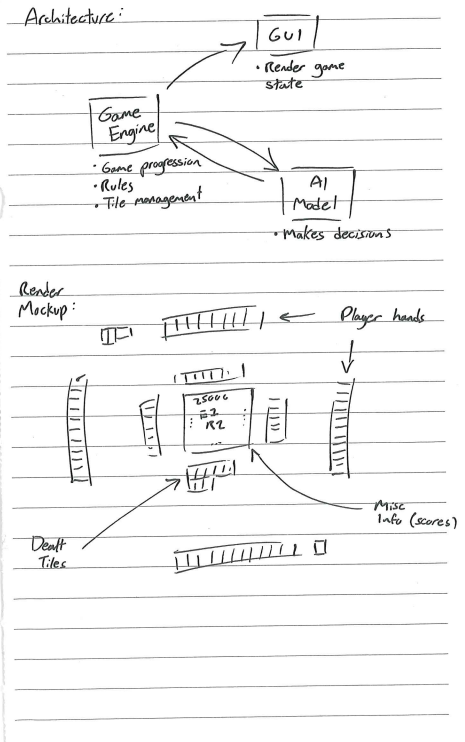 Architecture:
GUI
• Render game
state
Game
Engine
• Game progression
• Rules
• Tile management
AI
Model
• Makes decisions
Render
Mockup:
Player hands
25000
E2
R2
...
Misc
Info (scores)
Dealt
Tiles